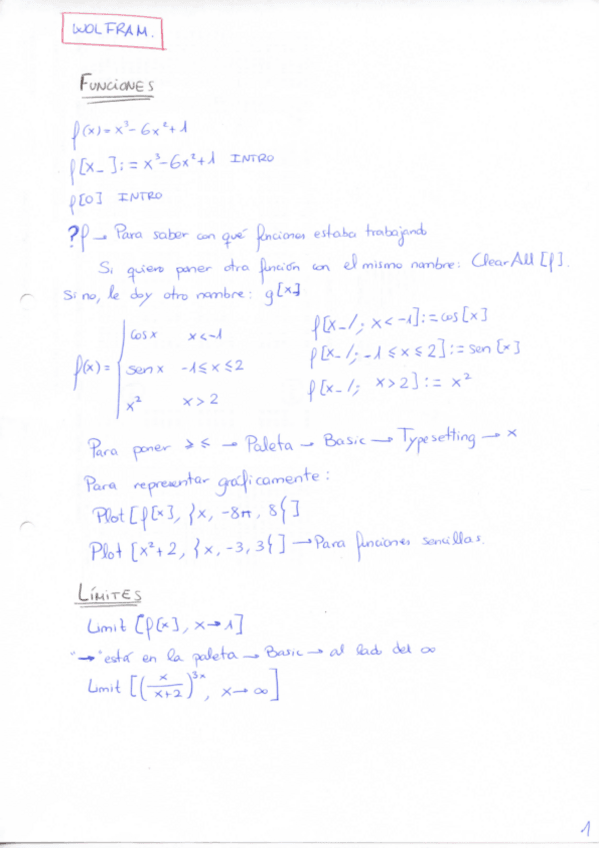 WOLFRAM.
FUNCIONES
f(x)=x³-6x²+1
f[x_]:=x³-6x²+1 INTRO
f[0] INTRO
?f → Para saber con qué funciones estaba trabajando
Si quiero poner otra función con el mismo nombre: ClearAll[f].
Si no, le doy otro nombre: g[x]
f(x)=
cos x x<-1
sen x -1≤x≤2
x² x>2
f[x_/; x<-1]:=cos[x]
f[x_/; -1≤x≤2]:=sen[x]
f[x_/; x>2]:= x²
Para poner ≥ ≤ → Paleta → Basic → Typesetting → x
Para representar gráficamente:
Plot[f[x], {x, -8π, 8{]
Plot [x²+2, {x, -3, 3{] → Para funciones sencillas.
LÍMITES
Limit [f[x], x→1]
"→" está en la paleta → Basic → al lado del ∞
Limit [(x/(x+2))^3x, x→∞]
1